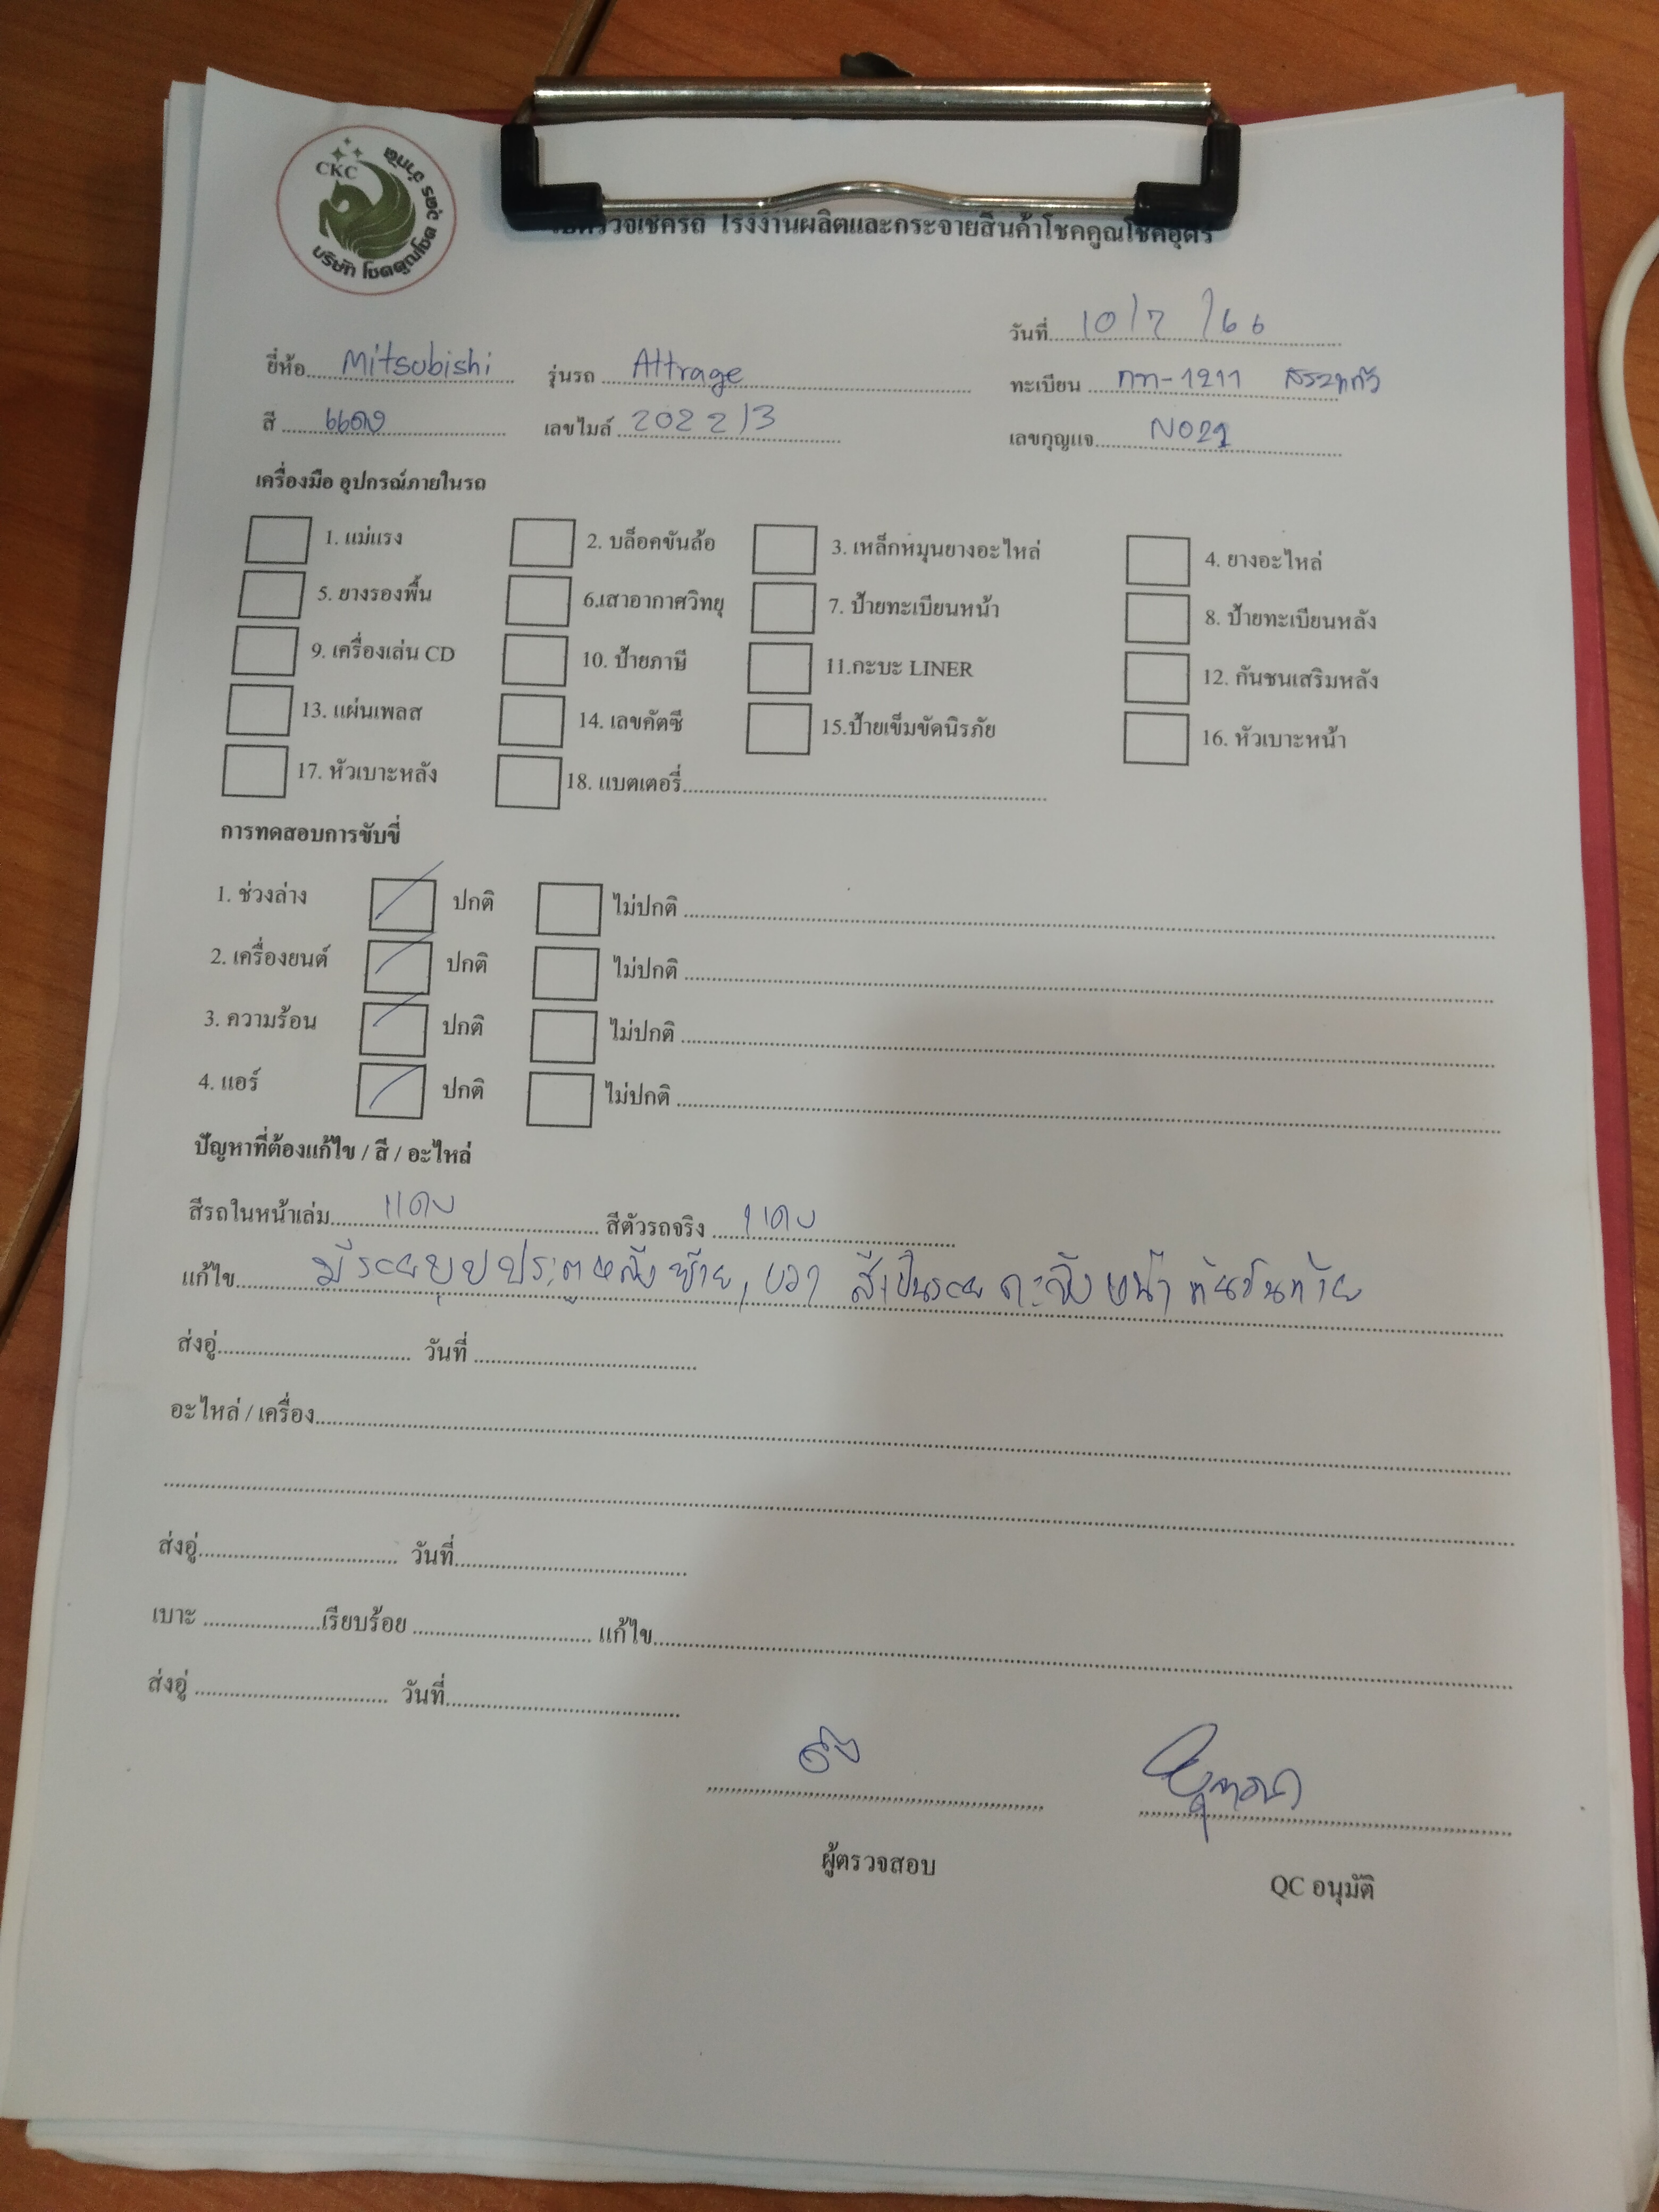 CKC
บริษัท โชคคูณโชค อุดร จำกัด
ใบตรวจเช็ครถ โรงงานผลิตและกระจายสินค้าโชคคูณโชคอุดร
วันที่ 10/7/66
ยี่ห้อ Mitsubishi รุ่นรถ Attrage ทะเบียน กท-1211 สระแก้ว
สี แดง เลขไมล์ 202213 เลขกุญแจ NO21
เครื่องมือ อุปกรณ์ภายในรถ
1. แม่แรง 2. บล็อคขันล้อ 3. เหล็กหมุนยางอะไหล่ 4. ยางอะไหล่
5. ยางรองพื้น 6.เสาอากาศวิทยุ 7. ป้ายทะเบียนหน้า 8. ป้ายทะเบียนหลัง
9. เครื่องเล่น CD 10. ป้ายภาษี 11.กะบะ LINER 12. กันชนเสริมหลัง
13. แผ่นเพลส 14. เลขคัตซี 15.ป้ายเข็มขัดนิรภัย 16. หัวเบาะหน้า
17. หัวเบาะหลัง 18. แบตเตอรี่
การทดสอบการขับขี่
1. ช่วงล่าง ปกติ ไม่ปกติ
2. เครื่องยนต์ ปกติ ไม่ปกติ
3. ความร้อน ปกติ ไม่ปกติ
4. แอร์ ปกติ ไม่ปกติ
ปัญหาที่ต้องแก้ไข / สี / อะไหล่
สีรถในหน้าเล่ม แดง สีตัวรถจริง แดง
แก้ไข มีรอยบุบประตูหลังซ้าย, ขวา สีเป็นรอย หน้า กันชนท้าย
ส่งอู่ วันที่
อะไหล่ / เครื่อง
ส่งอู่ วันที่
เบาะ เรียบร้อย แก้ไข
ส่งอู่ วันที่
ผู้ตรวจสอบ
QC อนุมัติ